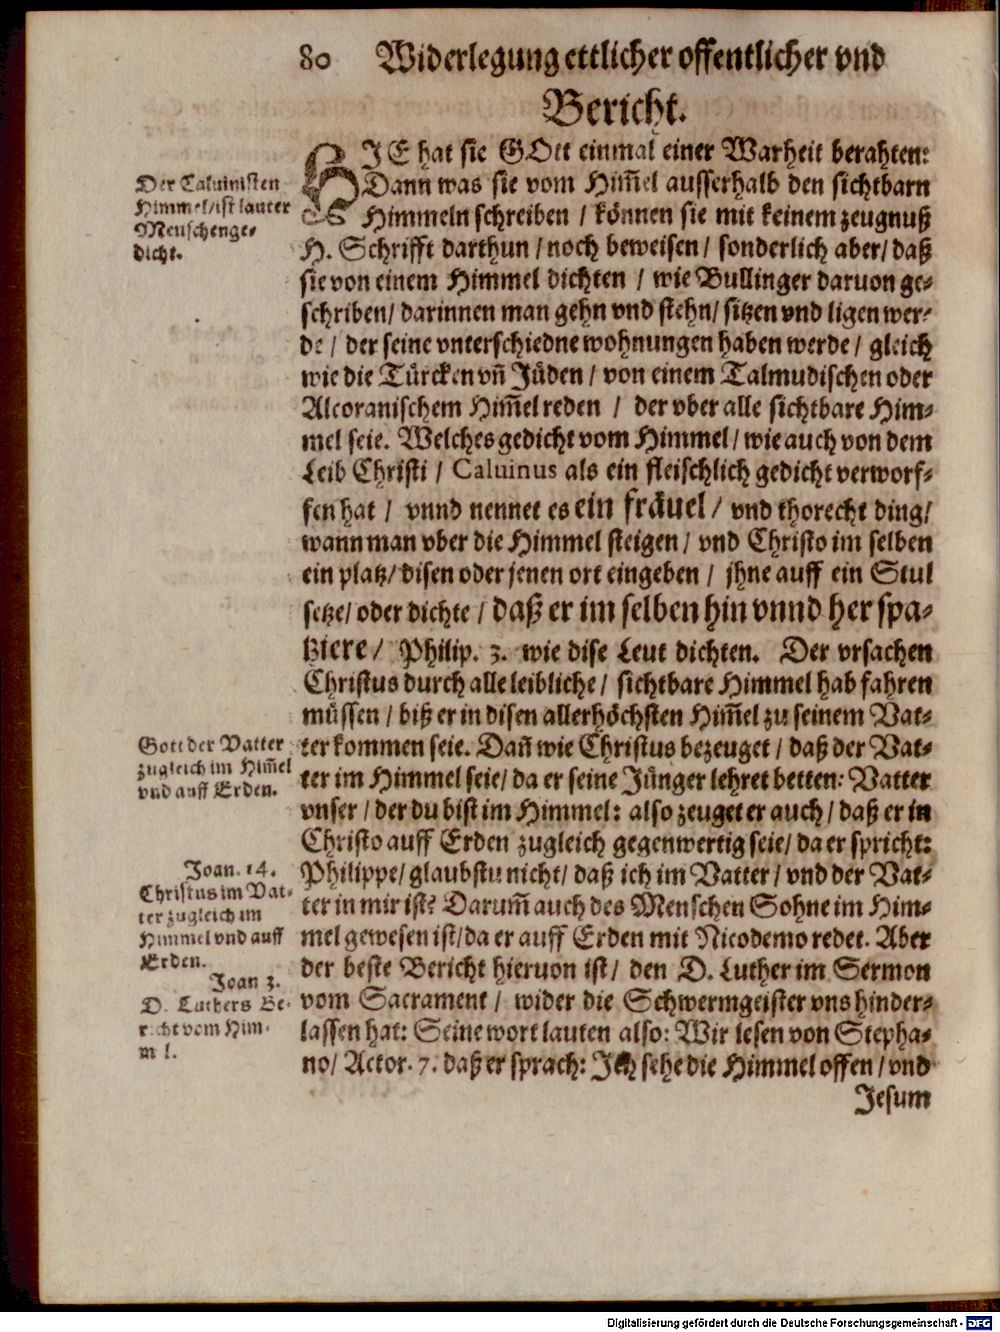 80 Widerlegung ettlicher offentlicher vnd
Bericht.
HJE hat sie GOtt einmal einer Warheit berahten:
Dann was sie vom Him̃el ausserhalb den sichtbarn
Himmeln schreiben / können sie mit keinem zeugnuß
H. Schrifft darthun / noch beweisen / sonderlich aber / daß
sie von einem Himmel dichten / wie Bullinger daruon ge-
schriben / darinnen man gehn vnd stehn / sitzen vnd ligen wer-
de / der seine vnterschiedne wohnungen haben werde / gleich
wie die Türcken vñ Jüden / von einem Talmudischen oder
Alcoranischem Him̃el reden / der vber alle sichtbare Him-
mel seie. Welches gedicht vom Himmel / wie auch von dem
Leib Christi / Caluinus als ein fleischlich gedicht verworf-
fen hat / vnnd nennet es ein fräuel / vnd thorecht ding /
wann man vber die Himmel steigen / vnd Christo im selben
ein platz / disen oder jenen ort eingeben / jhne auff ein Stul
setze / oder dichte / daß er im selben hin vnnd her spa-
tziere / Philip. 3. wie dise Leut dichten. Der vrsachen
Christus durch alle leibliche / sichtbare Himmel hab fahren
müssen / biß er in disen allerhöchsten Him̃el zu seinem Vat-
ter kommen seie. Dañ wie Christus bezeuget / daß der Vat-
ter im Himmel seie / da er seine Jünger lehret betten: Vatter
vnser / der du bist im Himmel: also zeuget er auch / daß er in
Christo auff Erden zugleich gegenwertig seie / da er spricht:
Philippe / glaubstu nicht / daß ich im Vatter / vnd der Vat-
ter in mir ist? Darum̃ auch des Menschen Sohne im Him-
mel gewesen ist / da er auff Erden mit Nicodemo redet. Aber
der beste Bericht hieruon ist / den D. Luther im Sermon
vom Sacrament / wider die Schwermgeister vns hinder-
lassen hat: Seine wort lauten also: Wir lesen von Stepha-
no / Actor. 7. daß er sprach: Jch sehe die Himmel offen / vnd
Jesum
Der Caluinisten
Himmel / ist lauter
Menschenge-
dicht.
Gott der Vatter
zugleich im Him̃el
vnd auff Erden.
Joan. 14.
Christus im Vat-
ter zugleich im
Himmel vnd auff
Erden.
Joan 3.
D. Luthers Be-
richt vom Him-
mel.
Digitalisierung gefördert durch die Deutsche Forschungsgemeinschaft - DFG